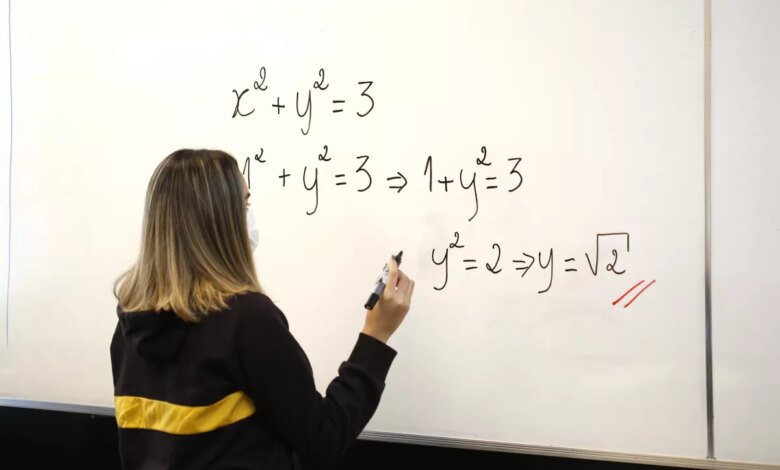 x² + y² = 3
1² + y² = 3 ⇒ 1 + y² = 3
y² = 2 ⇒ y = √2